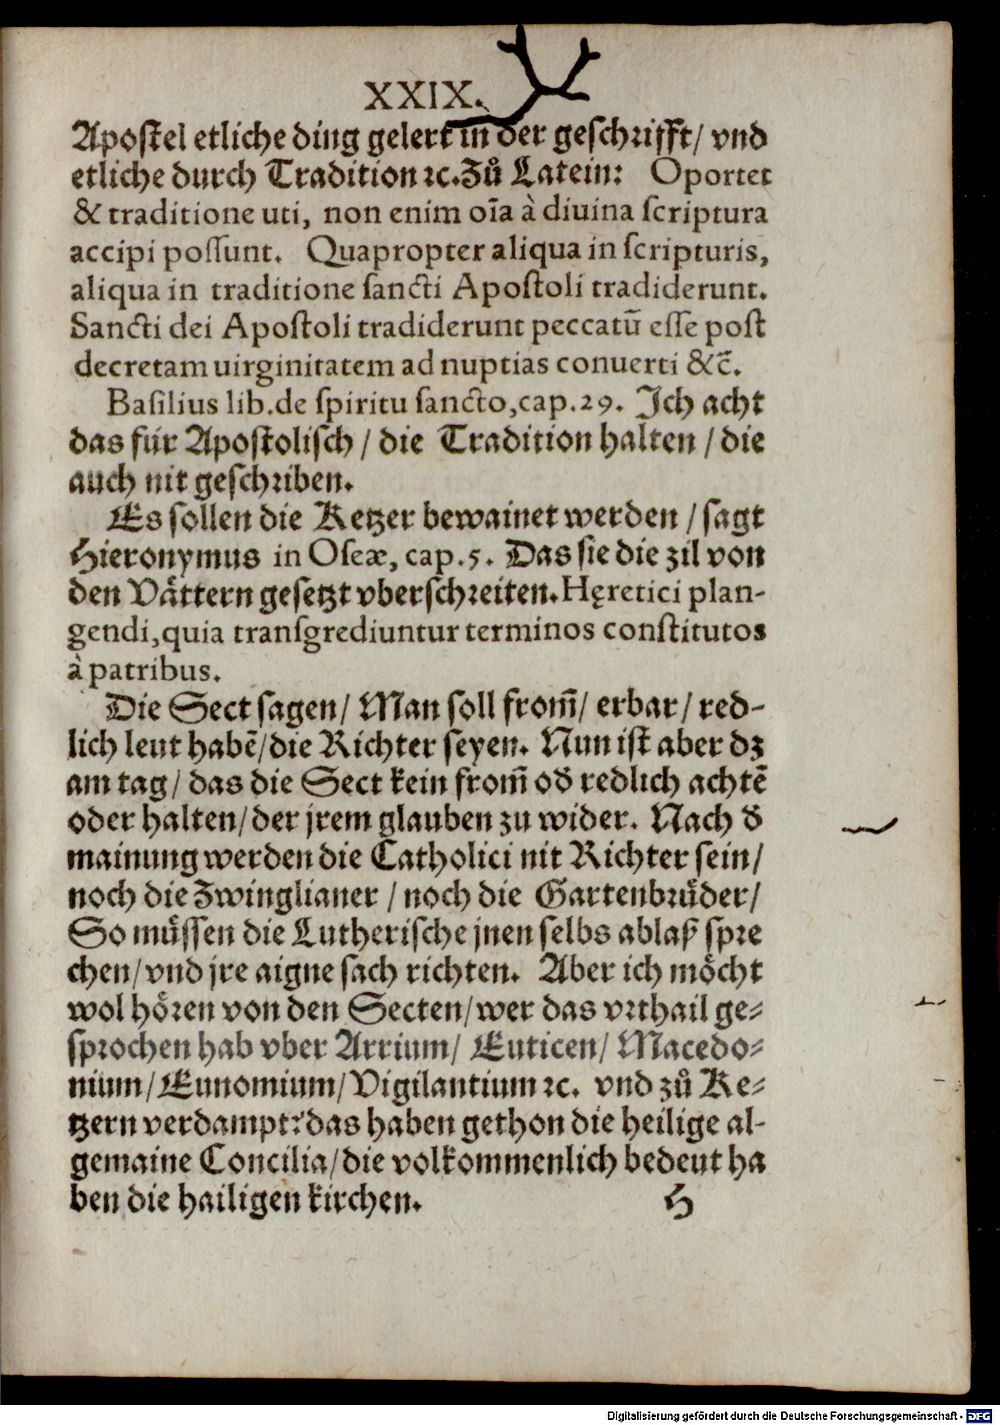 XXIX.
Apostel etliche ding gelert in der geschrifft/ vnd
etliche durch Tradition ꝛc. Zů Latein: Oportet
& traditione uti, non enim oīa à diuina scriptura
accipi possunt. Quapropter aliqua in scripturis,
aliqua in traditione sancti Apostoli tradiderunt.
Sancti dei Apostoli tradiderunt peccatū esse post
decretam uirginitatem ad nuptias conuerti &c̄.
Basilius lib. de spiritu sancto, cap. 29. Ich acht
das für Apostolisch / die Tradition halten / die
auch nit geschriben.
Es sollen die Ketzer bewainet werden / sagt
Hieronymus in Oseæ, cap. 5. Das sie die zil von
den Vättern gesetzt vberschreiten. Hęretici plan-
gendi, quia transgrediuntur terminos constitutos
à patribus.
Die Sect sagen/ Man soll from̄/ erbar/ red-
lich leut habē/ die Richter seyen. Nun ist aber dz
am tag/ das die Sect kein from̄ oď redlich achtē
oder halten/ der jrem glauben zu wider. Nach ď
mainung werden die Catholici nit Richter sein/
noch die Zwinglianer / noch die Gartenbrüder/
So müssen die Lutherische jnen selbs ablaß spre
chen/ vnd jre aigne sach richten. Aber ich möcht
wol hören von den Secten/ wer das vrthail ge-
sprochen hab vber Arrium/ Euticen/ Macedo-
nium/ Eunomium/ Vigilantium ꝛc. vnd zů Ke-
tzern verdampt? das haben gethon die heilige al-
gemaine Concilia/ die volkommenlich bedeut ha
ben die hailigen kirchen.
H
Digitalisierung gefördert durch die Deutsche Forschungsgemeinschaft - DFG